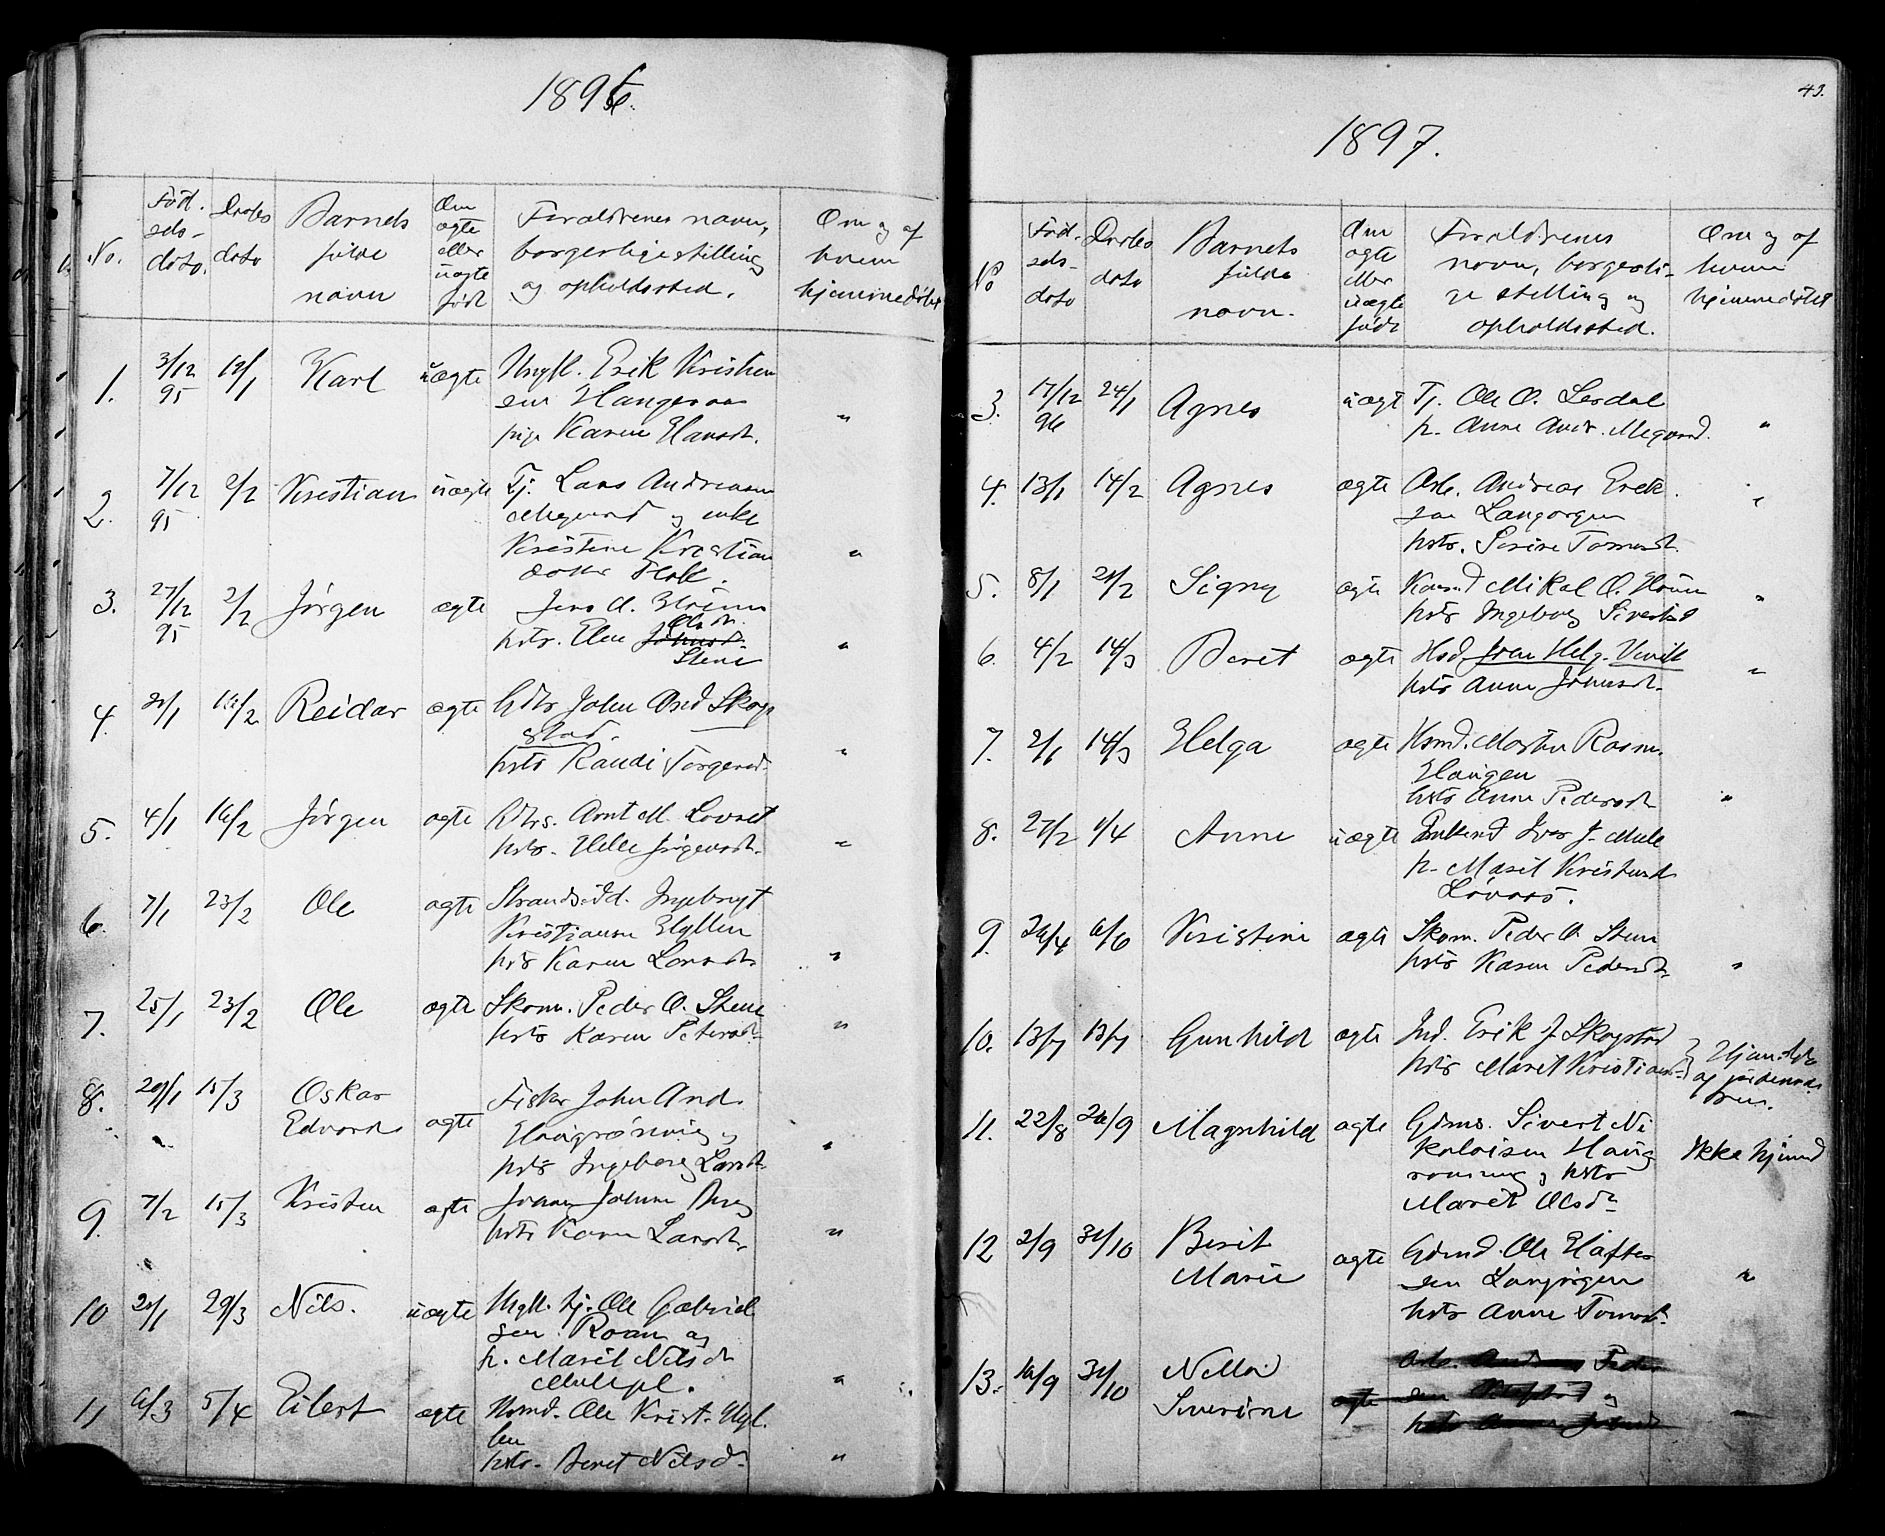 1896.
No.
Fød.
sels-
dato.
Daabs
dato
Barnets
fulde
navn
Om
ægte
eller
uægte
født
Forældrenes navn,
borgerlige stilling
og opholdssted.
Om og af
hvem
hjemmedøbt
1.
3/12
95
19/1
Karl
uægte
Ungk. Erik Kristian
sen
pige Karen Hansdt.
"
2.
7/12
95
2/2
Kristian
uægte
Tj. Lars Andreasen
Megaard og enke
Kristine Kristian
datter
"
3.
27/12
95
2/2
Jørgen
ægte
Jens A.
Olsdt.
hstr. Elen Johnsdt.
Stene
"
4.
16/2
Reidar
ægte
Gdbr John And Skog
stad.
hstr Randi Torgersd.
"
5.
4/1
16/2
Jørgen
ægte
Arnt M. Lovset
hstr. Helle Jørgensdt.
"
6.
7/1
23/2
Ole
ægte
Strands.d. Ingebrigt
Kristiansen Hyllen
hstr Karen Larsdt
"
7.
25/1
23/2
Ole
ægte
Skom. Peder O. Stene
hstr Karen Petersdt
"
8.
29/1
15/3
Oskar
Edvard
ægte
Fisker John And.
Haugrønning
hstr Ingeborg Larsdt
"
9.
7/2
15/3
Kristen
ægte
Johan Johnsen Berg
hstr Karen Larsdt.
"
10
29/3
Nils.
uægte
Ungk. tj. Ole Gabriel
sen Roan og
p. Marit Nilsdt
"
11
6/3
5/4
Eilert
ægte
Husmd. Ole Krist. Hyl.
len
hstr. Beret Nilsd.
"
43.
1897.
No
Fød.
sels-
dato
Daabs
dato
Barnets
fulde
navn.
Om
ægte
eller
uægte
født
Forældrenes
navn, borgerli-
ge stilling og
opholdssted.
Om og af
hvem
hjemmedøbt
3.
17/12
96
24/1
Agnes
uægt
Tj. Ole O. Lerdal
p. Anne Andr. Megaard.
"
4.
13/1
14/2
Agnes
ægte
Arb. Andreas Erik.
sen Langørgen
hstr. Serine Tomasdt.
"
5.
8/1
21/2
Signy
ægte
Mikal O.
hstr Ingeborg Sivertsd
"
6.
4/2
14/3
Beret
ægte
Iver Helg. Venik
hstr Anne Johnsdt.
"
7.
2/1
14/3
Helga
ægte
Husmd. Morten Rasm.
Haugen
hstr Anne Pedersdt
"
8.
27/2
1/4
Anne
uægte
Iver J. Mule
p. Marit Kristensdt
9.
26/4
6/6
Kristine
ægte
Skom. Peder O. Stene
hstr Karen Pedersdt
"
10.
13/7
13/7
Gunhild
ægte
Ind. Erik J Skogstad
hstr Marit Kristians
Hjemdøbt
af jordemod.
11.
22/8
26/9
Magnhild
ægte
Gdmd. Sivert Ni
kolaisen Haug
rønning og hstr
Marit Olsdt
Ikke hjemd
12
2/9
31/10
Berit
Marie
ægte
Gdmd. Ole Hafter
sen Langørgen
hstr Anne Tomasdt.
"
13.
16/9
31/10
Nella
Severine
ægte
Arb. Andreas Peder
sen og
hstr Anna
"